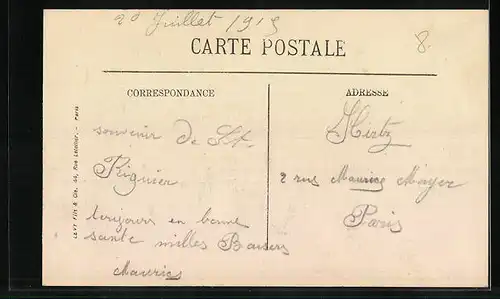 2d Juillet 1915
CARTE POSTALE
8.
CORRESPONDANCE
ADRESSE
souvenir de St.
Riquier
toujours en bonne
sante milles Baisers
Maurice
Hirtz
2 rue Maurice Mayer
Paris
LEVY Fils & Cie, 44, Rue Letellier. — Paris